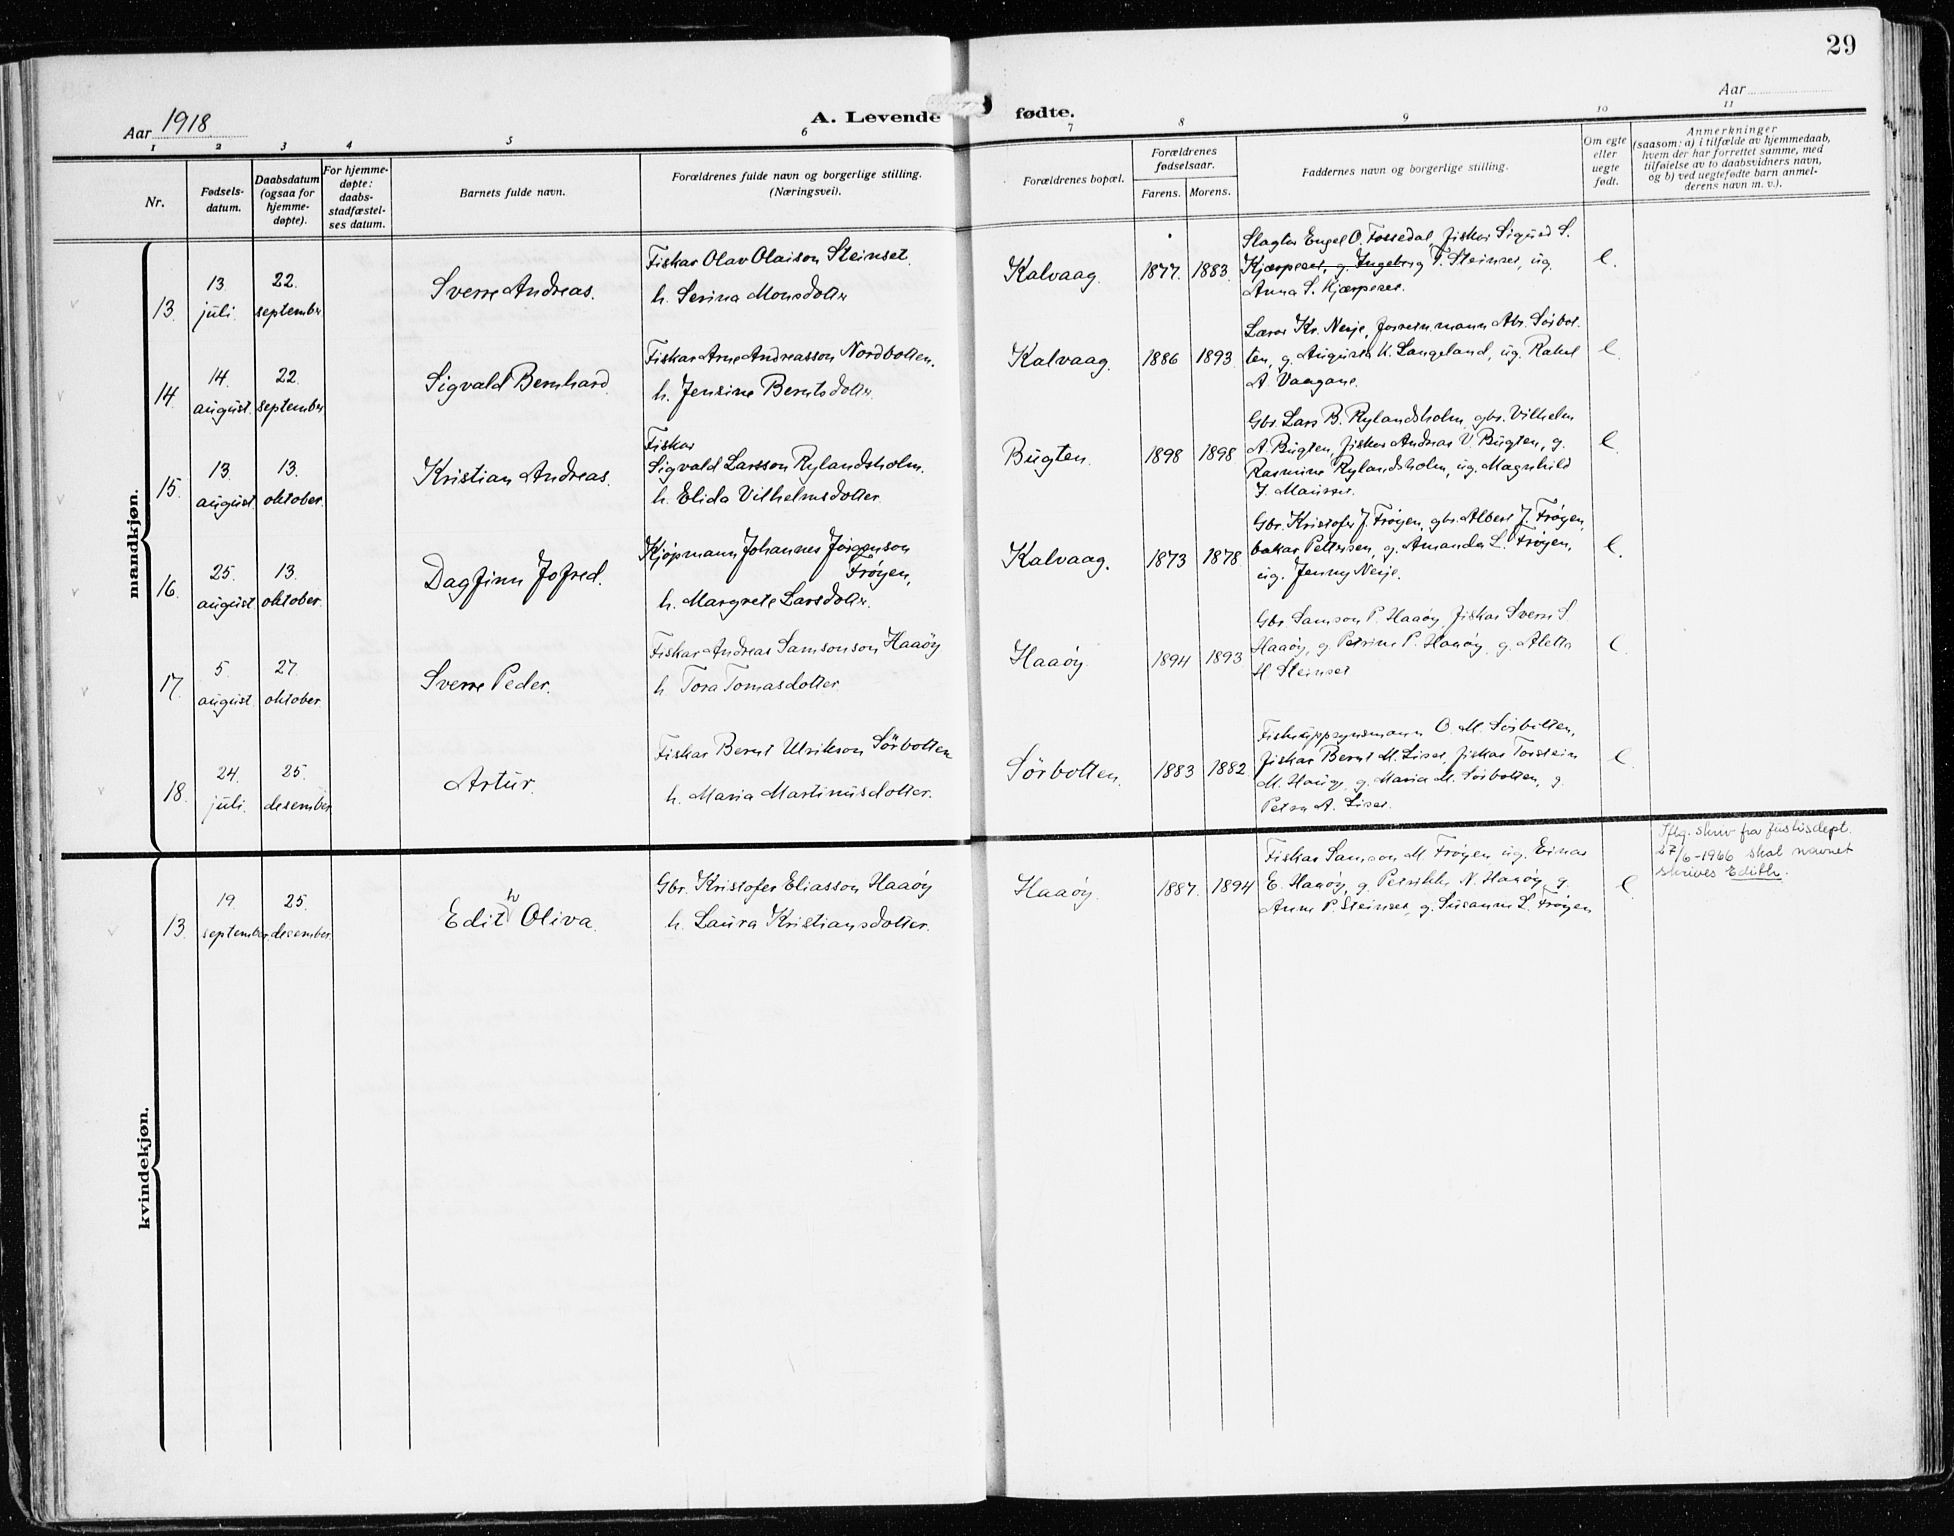 29
Aar 1918
A. Levende fødte.
Aar
1 2 3 4 5 6 7 8 9 10 11
Nr.
Fødsels-
datum.
Daabsdatum
(ogsaa for
hjemme-
døpte).
For hjemme-
døpte:
daabs-
stadfæstel-
ses datum.
Barnets fulde navn.
Forældrenes fulde navn og borgerlige stilling.
(Næringsvei).
Forældrenes bopæl.
Forældrenes
fødselsaar.
Farens. Morens.
Faddernes navn og borgerlige stilling.
Om egte
eller
uegte
født.
Anmerkninger
(saasom: a) i tilfælde av hjemmedaab,
hvem der har forrettet samme, med
tilføielse av to daabsvidners navn,
og b) ved uegtefødte barn anmel-
derens navn m. v.).
mandkjøn.
13.
13.
juli.
22.
september
Sverre Andreas.
Fiskar Olav Olaison Steinset.
h. Serina Monsdotter
Kalvaag.
1877. 1883.
Slagtar Engel O. Fossedal, fiskar Sigurd S.
Kjærpeset, g. Ingeborg T. Steinset, ug.
Anna S. Kjærpeset.
e.
14.
14.
august.
22.
september.
Sigvald Bernhard.
Fiskar Arne Andreasson Nordbotten.
h. Jensine Berntsdotter.
Kalvaag.
1886 1893.
Lærar Kr. Nesje, forretn.mann Abr. Sørbot-
ten, g. Augusta K. Langeland, ug. Rakel
A. Vaagane.
e.
15.
13.
august.
13.
oktober.
Kristian Andreas.
Fiskar
Sigvald Larsson Rylandsholm.
h. Elida Vilhelmsdotter.
Bugten.
1898 1898
Gbr. Lars B. Rylandsholm, gbr. Vilhelm
A. Bugten, fiskar Andreas V. Bugten, g.
Rasmine Rylandsholm, ug. Magnhild
J. Maurset.
e.
16.
25.
august
13.
oktober.
Dagfinn Jofred.
Kjøpmann Johannes Jørgenson
Frøyen,
h. Margrete Larsdotter.
Kalvaag.
1873 1878
Gbr. Kristofer J. Frøyen, gbr. Albert J. Frøyen,
bakar Pettersen, g. Amanda L. Frøyen,
ug. Jenny Nesje.
e.
17.
5.
august.
27.
oktober.
Sverre Peder.
Fiskar Andreas Samsonson Haaøy
h. Tora Tomasdotter.
Haaøy.
1894 1893
Gbr. Samson P. Haaøy, fiskar Sverre S.
Haaøy, g. Petrine P. Haaøy, g. Aletta
M. Steinset
e.
18.
24.
juli.
25.
desember
Artur.
Fiskar Bernt Ulrikson Sørbotten
h. Maria Martinusdotter.
Sørbotten.
1883 1882
Fiskeuppsynsmann O. M. Sørbotten,
fiskar Bernt M. Liset, fiskar Torstein
M. Hauge, g. Maria M. Sørbotten, g.
Petra A. Liset.
e.
kvindekjøn.
13.
19.
september.
25.
desember.
h
Edit Oliva.
Gbr. Kristofer Eliasson Haaøy
h. Laura Kristiansdotter.
Haaøy.
1887. 1894
Fiskar Samson M. Frøyen, ug. Einar
E. Haaøy, g. Petrikke N. Haaøy, g.
Anne P. Steinset, g. Susanne L. Frøyen
e.
Iflg. skriv fra Justisdept.
27/6-1966 skal navnet
skrives Edith.